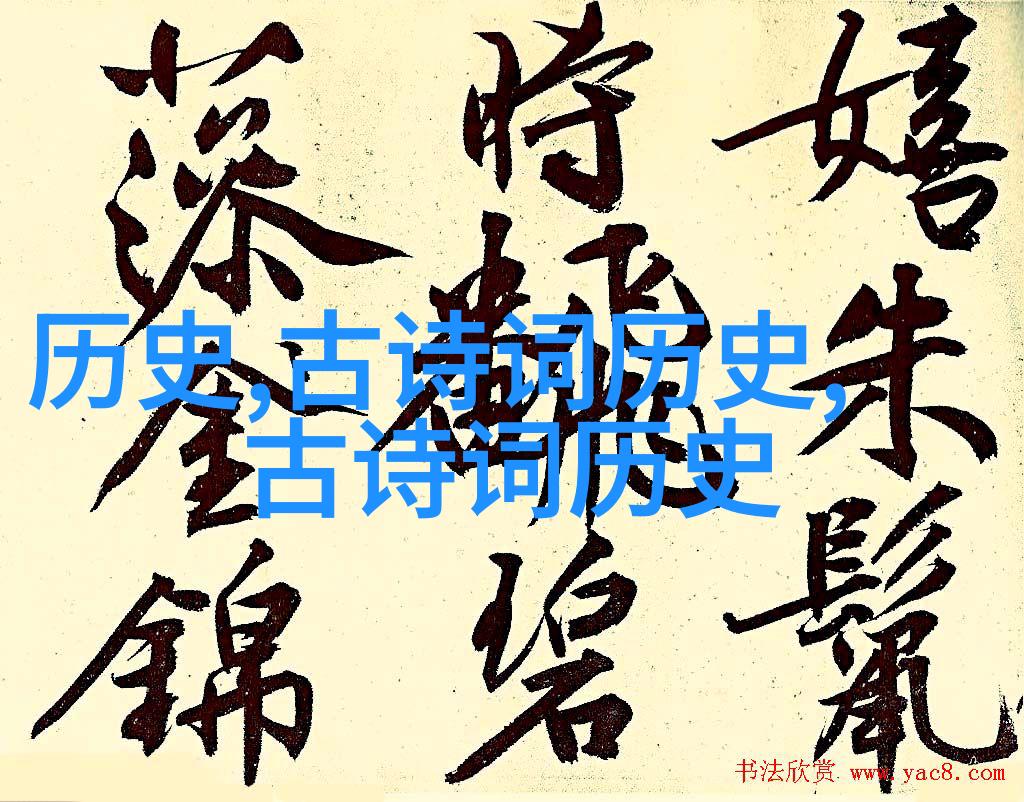 嬉朱鬣
時碧
錦
历史,古诗词历史,
古诗词历史
书法欣赏 www.yac8.com